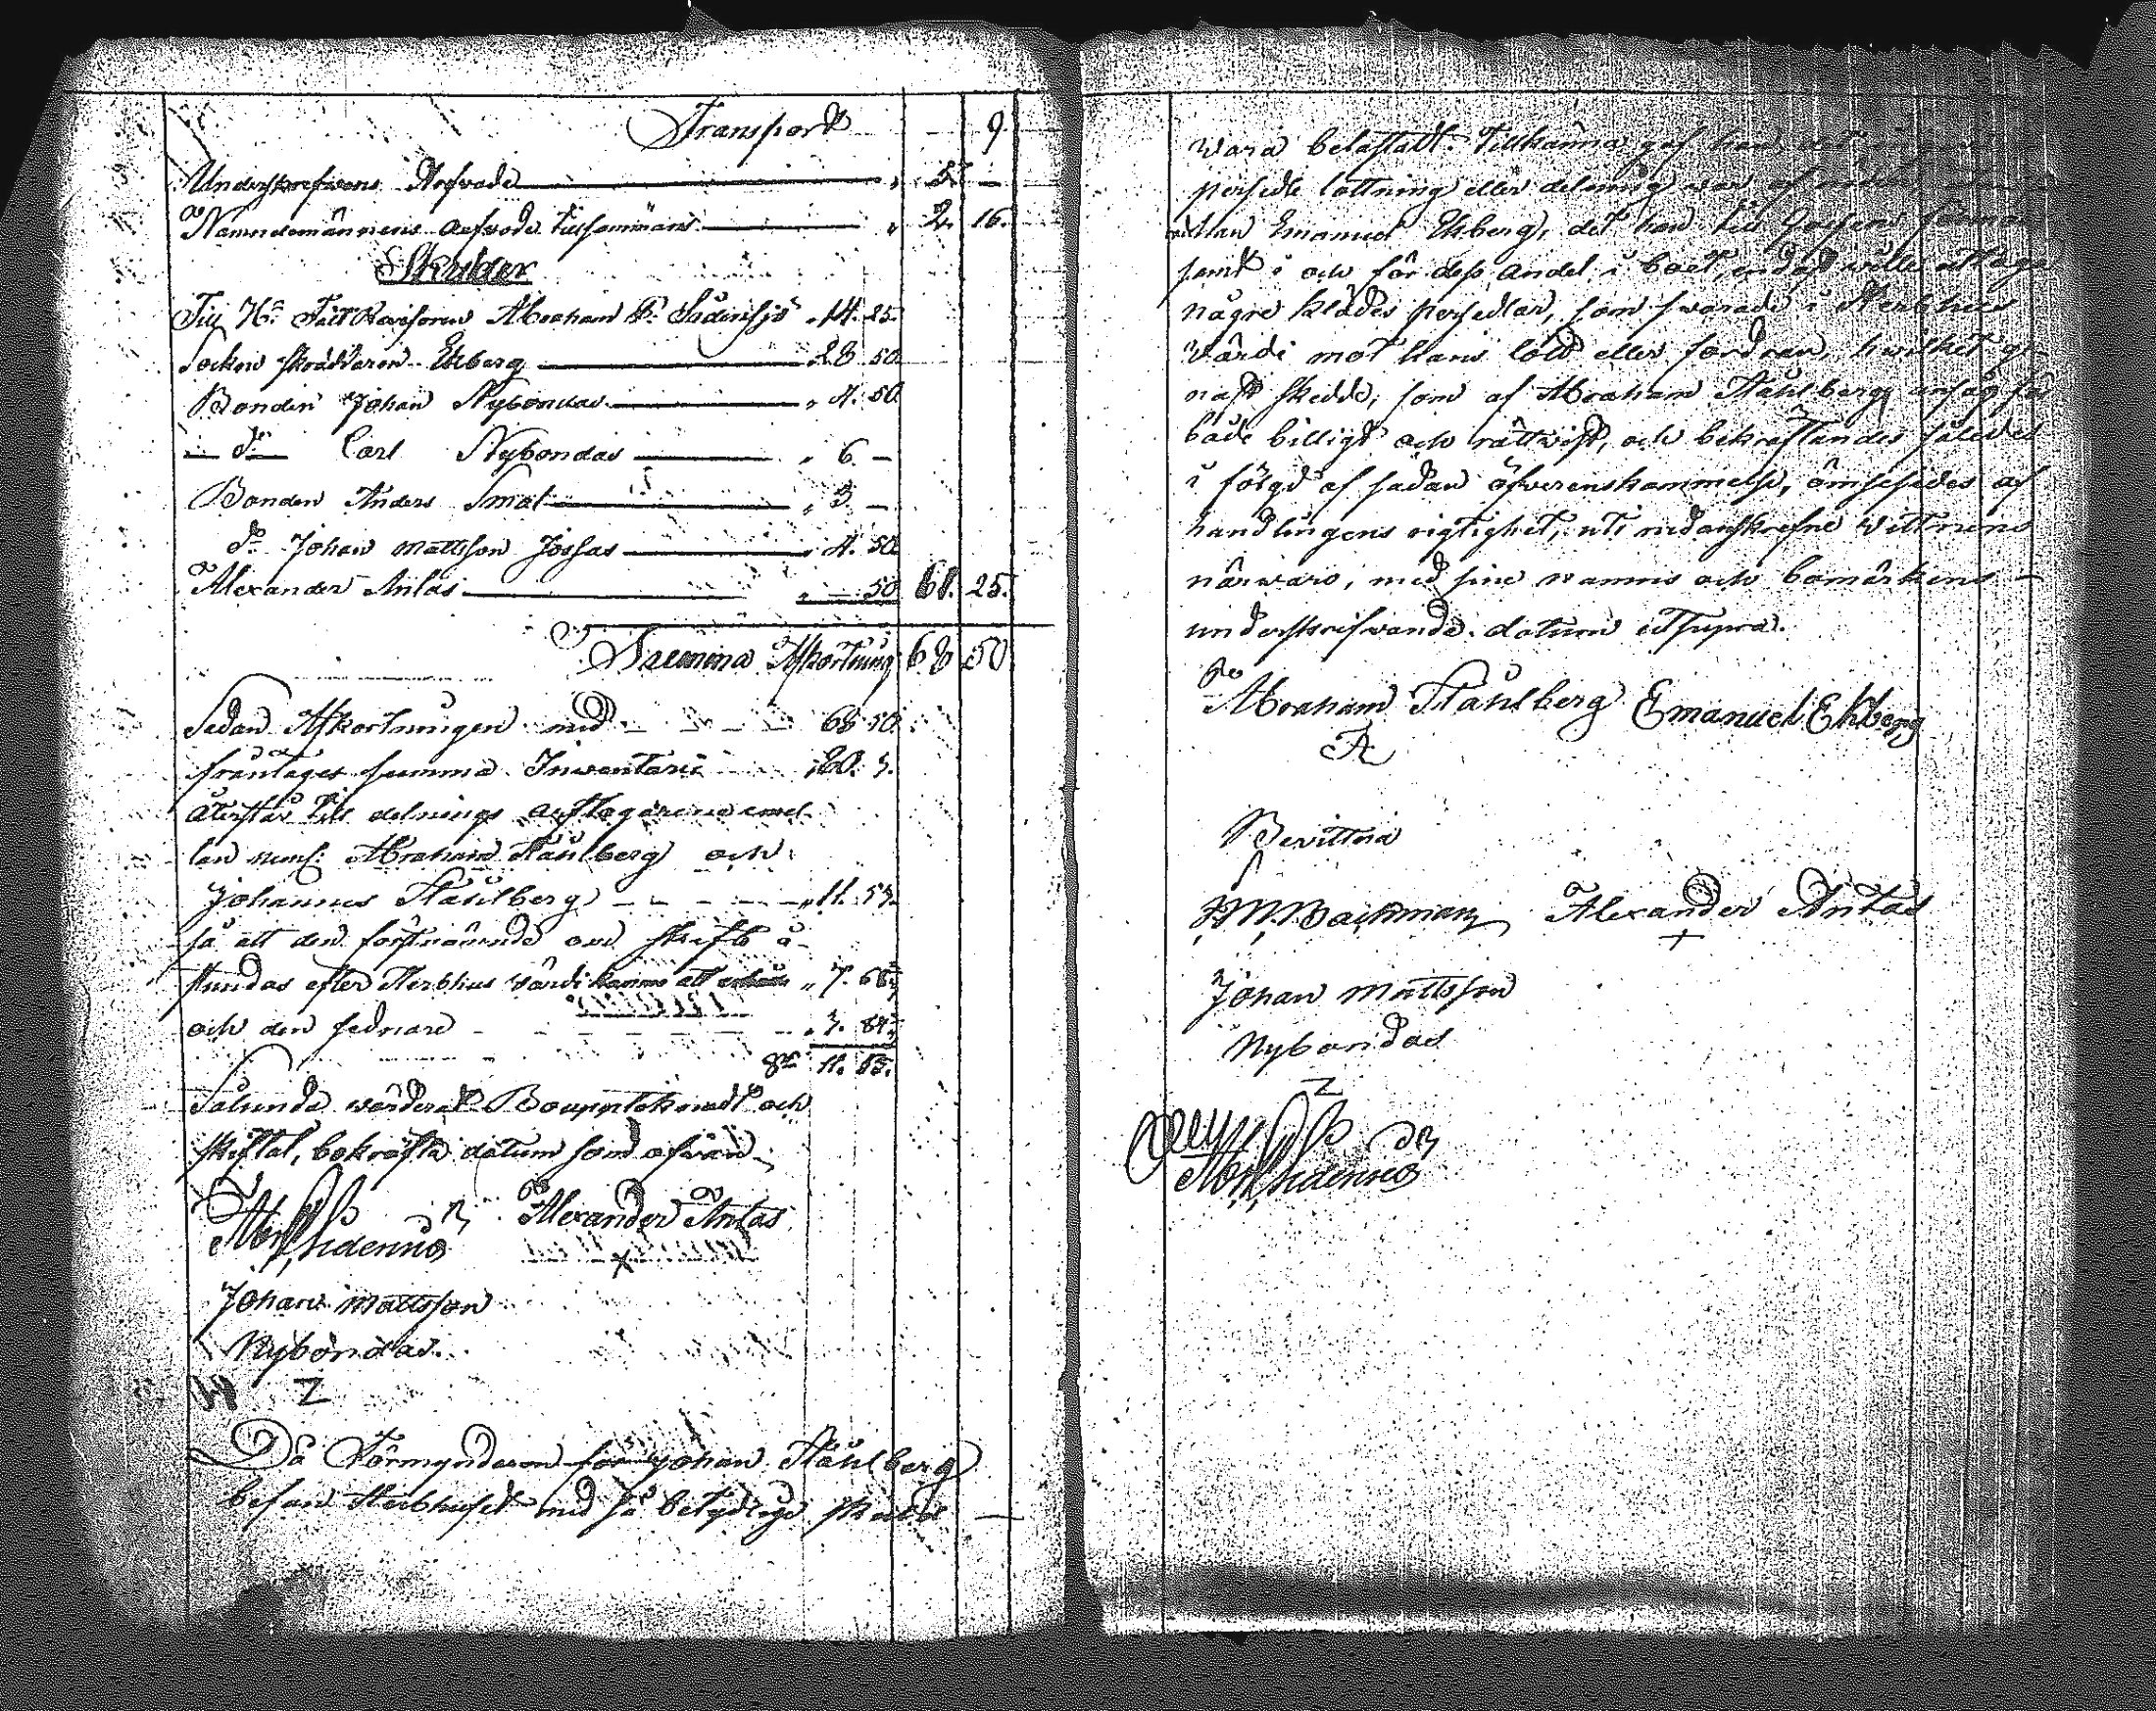 Transport 9.
Underskrefvens Arfvode " 5. –
Nämndemännens arfvode tillsammans " 2. 16.
Skulder
Till H:r Fält Kaiforen Abraham Sidensjö " 14. 25.
Socken skräddaren Ekberg " 28 50
Bonden Johan Nybondas " 4. 50
– d:o – Carl Nybondas " 6. –
Bonden Anders Smat " 3. –
d:o Johan Mattsson Jossas " 4. 50
Alexander Antas " – 50 61. 25.
Summa Afkortning 68 50
Sedan Afkortningen med 68 50.
fråntages summa Inventarii 80. 3.
återstår till delnings arftagarene emel-
lan neml: Abraham Ståhlberg och
Johannes Ståhlberg " 11. 53.
så att den förstnämnde om skifte å-
stundas efter Sterbhus värdi kommer att erhålla " 7. 68
och den sednare " 3. 84
S:r 11. 53.
Sålunda värderat Bouppteknadt och
skiftat, bekräfta datum som ofvan.
Alexander Antas
x
Johan Mattsson
Nybondas.
Z
Då Förmyndaren för Johan Ståhlberg
befan Sterbhuset med så betydlige skulder
vara belastadt. Tillkänna gaf han att ingen
persedle lottning eller delning var af
utan Emanuel Ekberg, det han till Gossens förmon
samt i och för dess andel i boet, endast ville uttaga
någre klädes persedlar, som svarade i Sterbhus
värdi mot hans lott eller fordran, hvilket ge-
nast skedde, som af Abraham Ståhlberg ansågs för
både billigt och rättvist, och bekräftandes således
i följd af sådan öfverenskommelse, ömsesides af
handlingens rigtighet, uti nedanskrefne vittnens
närvaro, med sine namns och bomärkens –
underskrifvande. datum utsupra.
Abraham Ståhlberg Emanuel Ekberg
A
Bevittna
Backman Alexander Antas
x
Johan Mattsson
Nybondas
Z